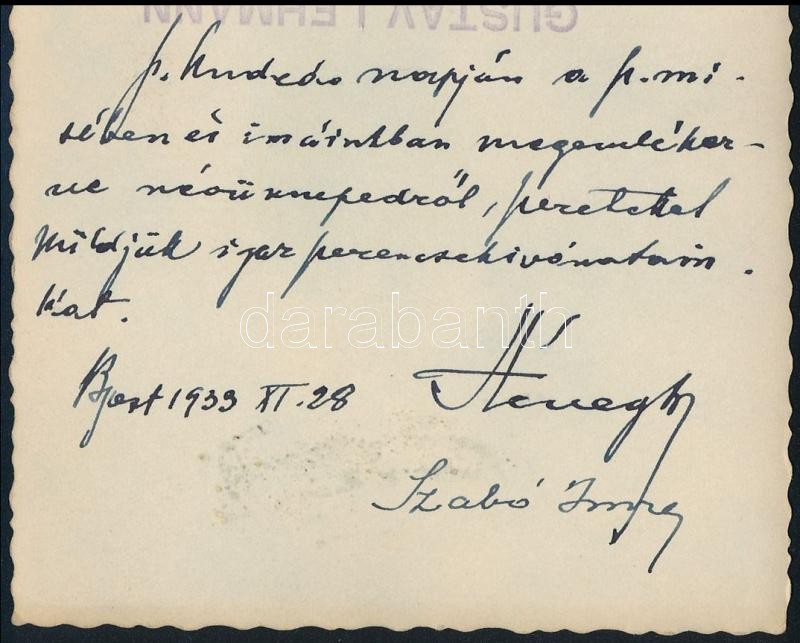 GUSTAV LEHMANN
Sz. András napján a sz. mi-
sében és imáinkban megemlékez-
ve névünnepedről, szeretettel
küldjük igaz szerencsekivánatain-
kat.
darabanth
Bpest 1933 XI. 28
Szabó Imre